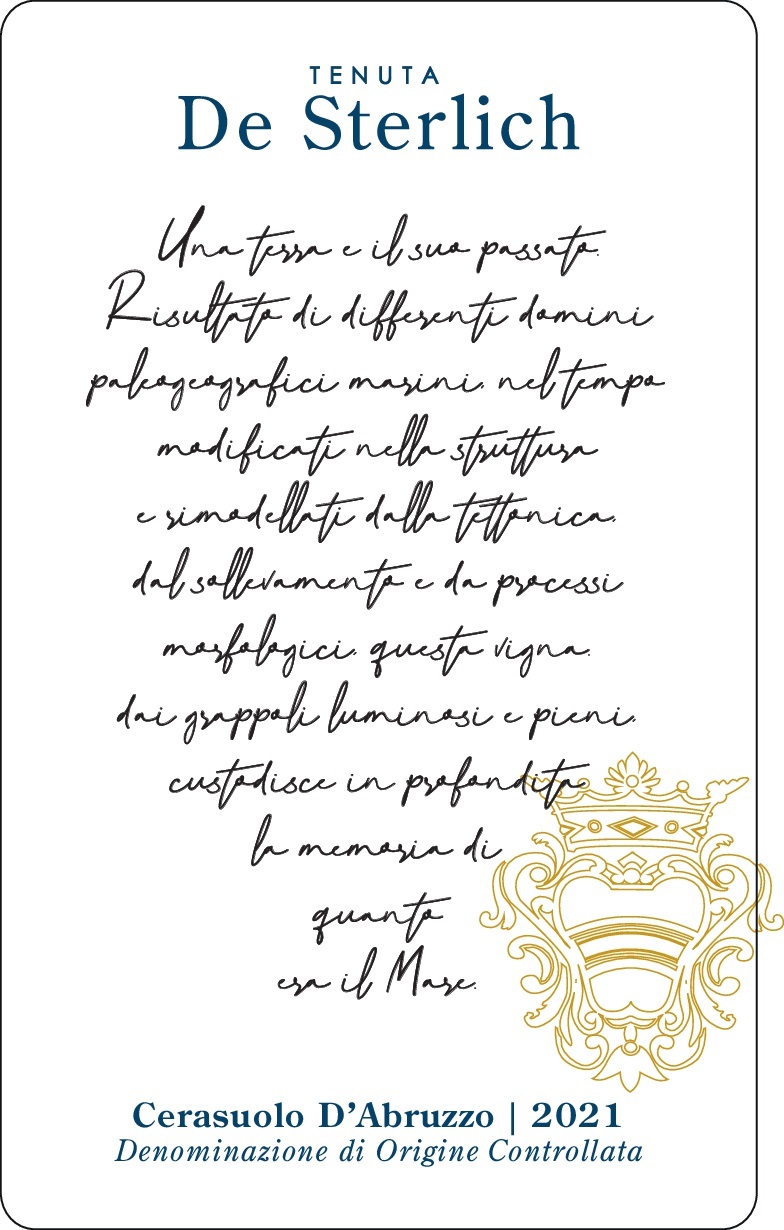 TENUTA
De Sterlich
Una terra e il suo passato.
Risultato di differenti domini
paleogeografici marini, nel tempo
modificati nella struttura
e rimodellati dalla tettonica,
dal sollevamento e da processi
morfologici, questa vigna,
dai grappoli luminosi e pieni,
custodisce in profondità
la memoria di
quanto
era il Mare.
Cerasuolo D’Abruzzo | 2021
Denominazione di Origine Controllata